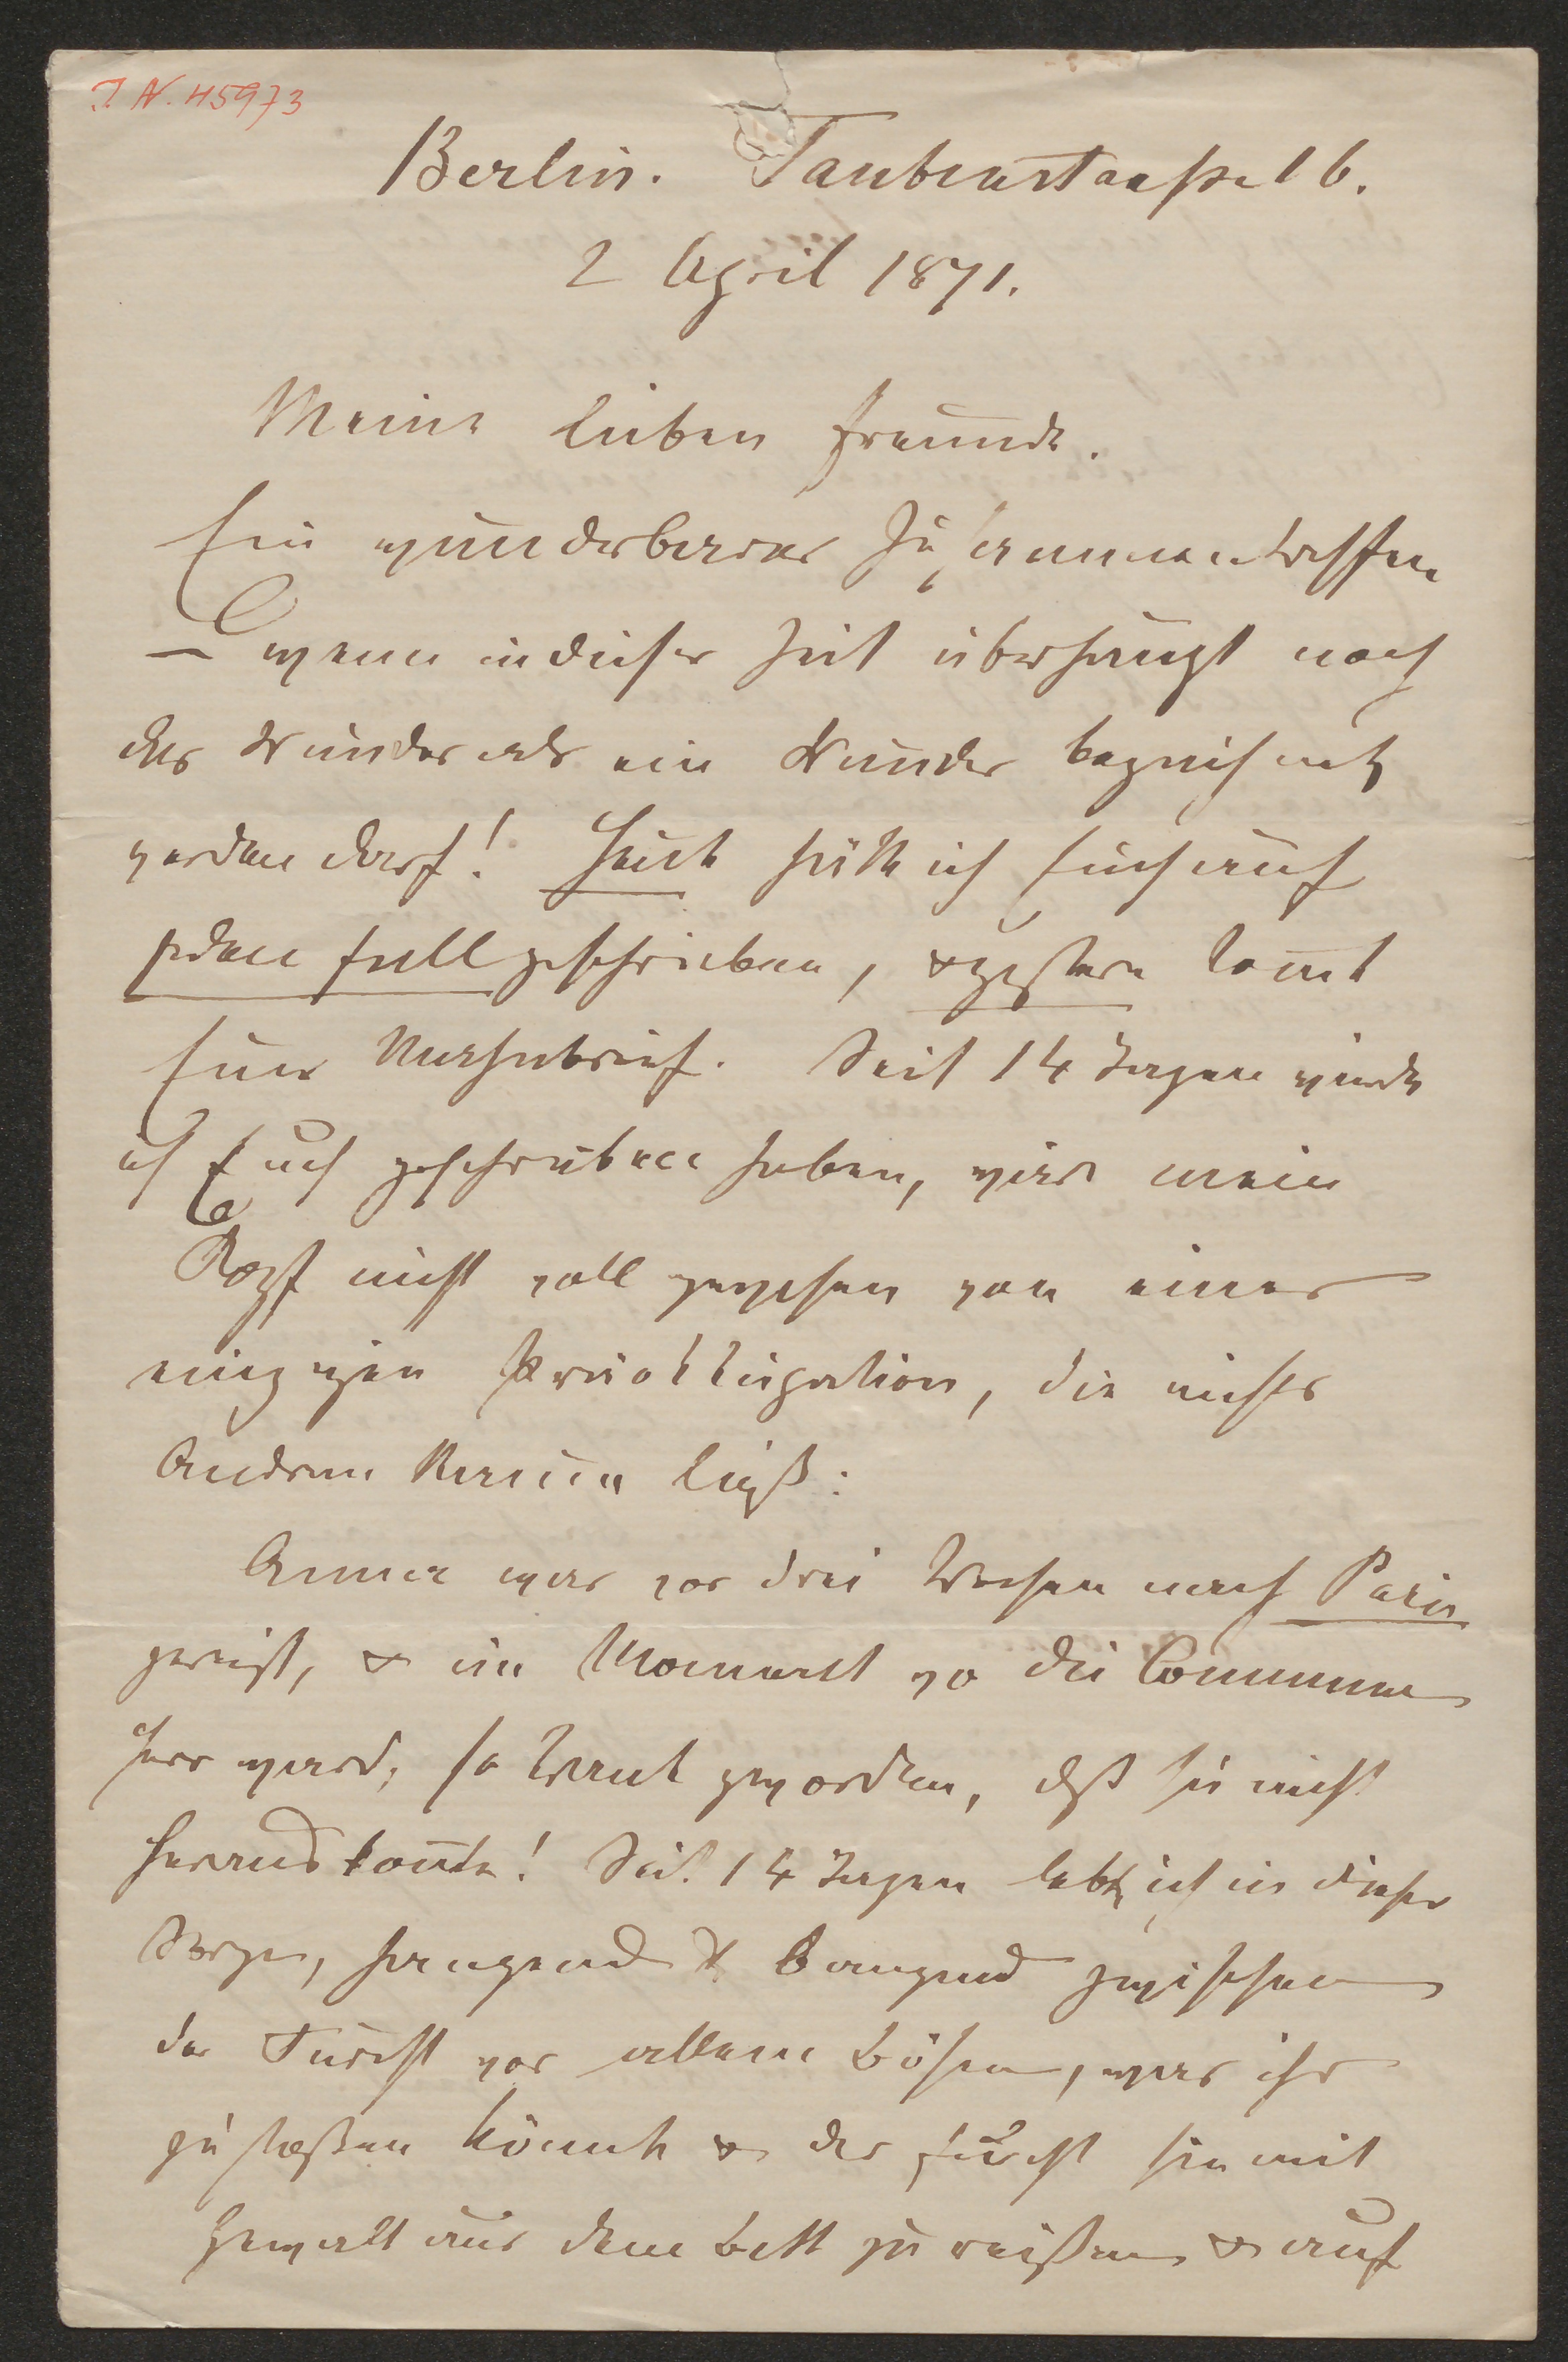 I. N. 45973
Berlin. Taubenstraße 16.
2 April 1871.
Meine lieben Freunde.
Ein wunderbares Zusammentreffen
– wenn in dieser Zeit überhaupt noch
das Wunder als ein Wunder bezeichnet
werden darf! Heute hätte ich Euch auf
jeden Fall geschrieben, & gestern kom̄t
Euer Mahnbrief. Seit 14 Tagen würde
ich Euch geschrieben haben, wäre mein
Kopf nicht voll gewesen von einer
einzigen, die nichts
Andrem Raum ließ:
Anna war vor drei Wochen nach Paris
gereist, & im Moment wo die Commune
Herr ward, so krank geworden, daß sie nicht
heraus kon̄te! Seit 14 Tagen lebte ich in dieser
Sorge, hangend & bangend zwischen
der Furcht vor allem Bösen, was ihr
zustoßen könnte & der Furcht sie mit
Gewalt aus dem Bett zu reißen & auf